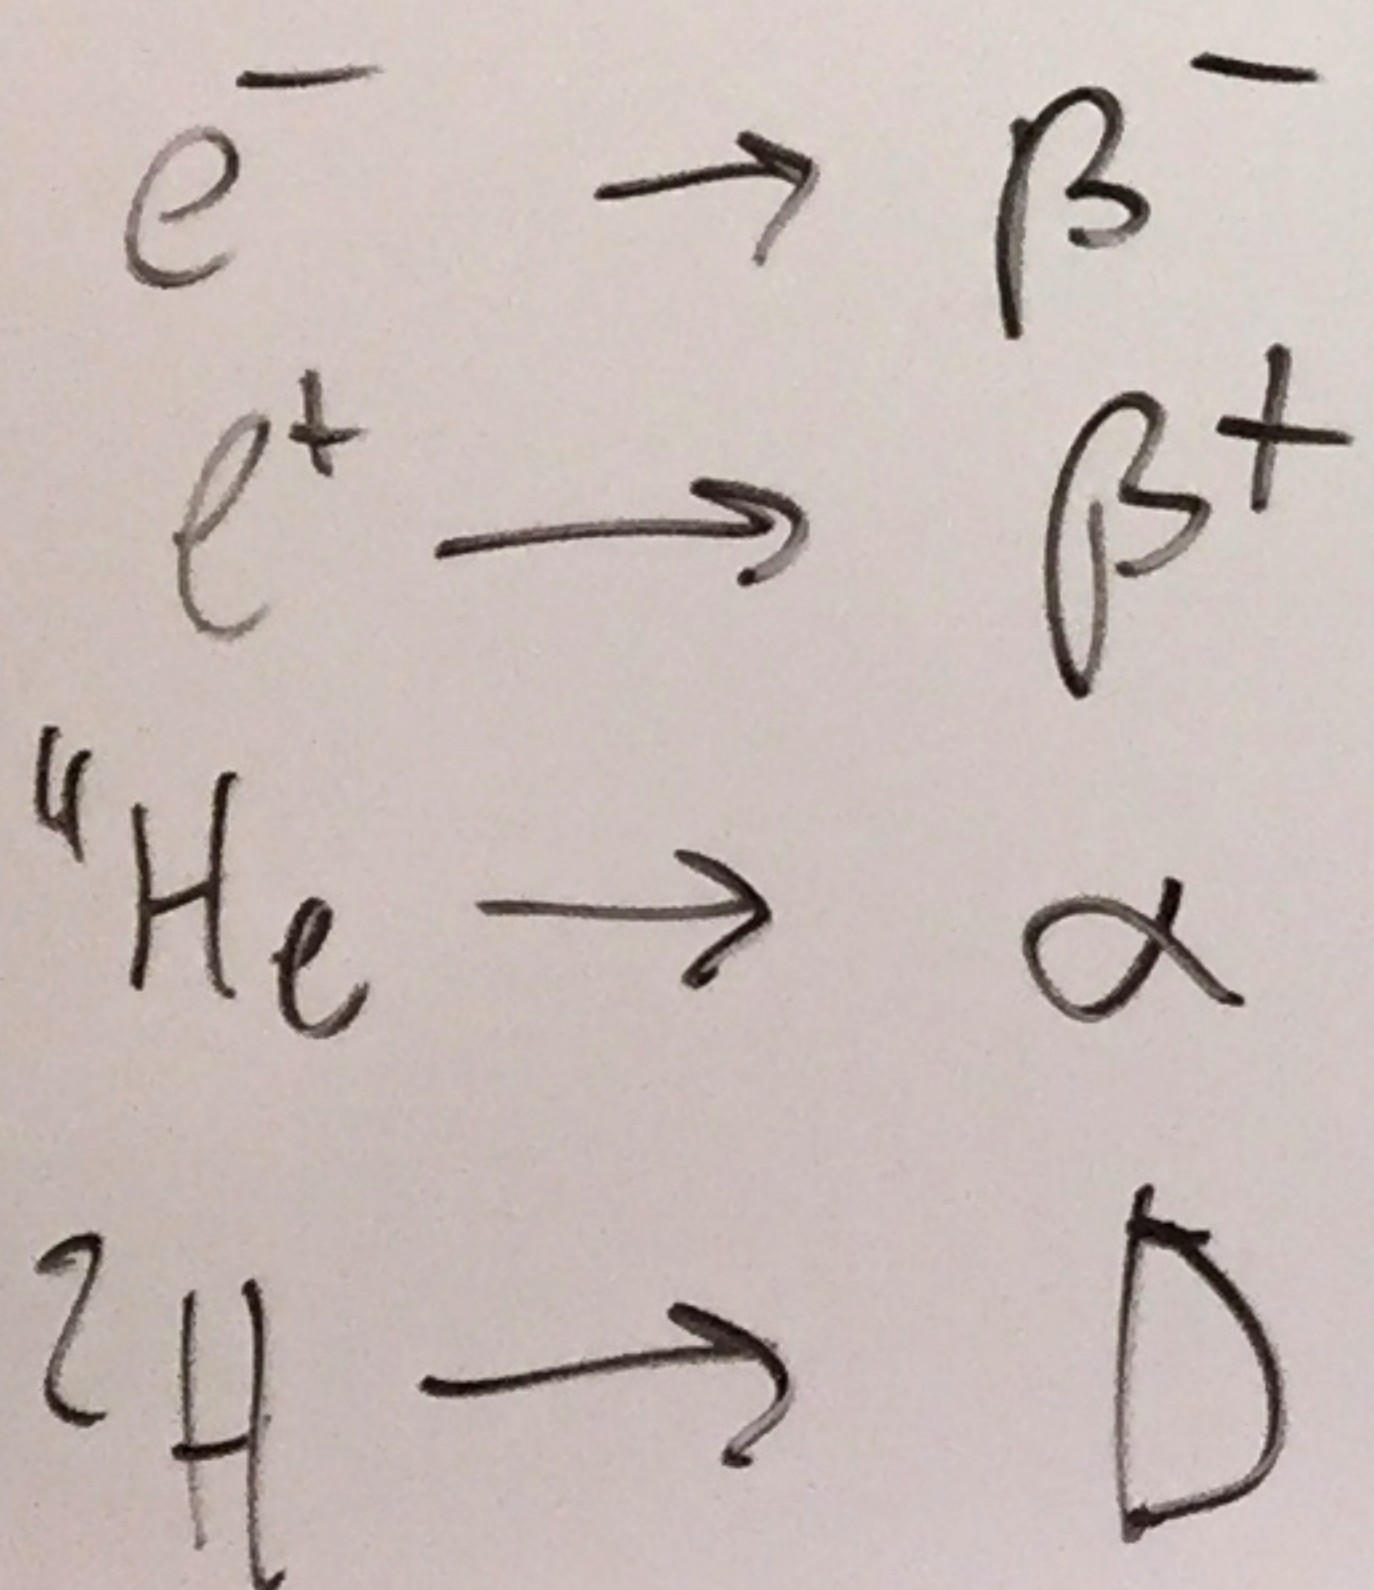 e⁻ → β⁻
e⁺ → β⁺
⁴He → α
²H → D